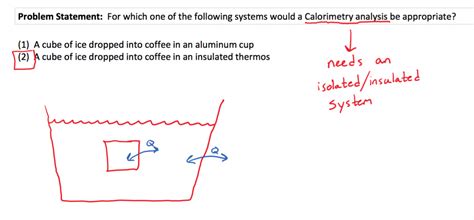 Problem Statement: For which one of the following systems would a Calorimetry analysis be appropriate?
(1) A cube of ice dropped into coffee in an aluminum cup
(2) A cube of ice dropped into coffee in an insulated thermos
needs an
isolated/insulated
system
Q
Q